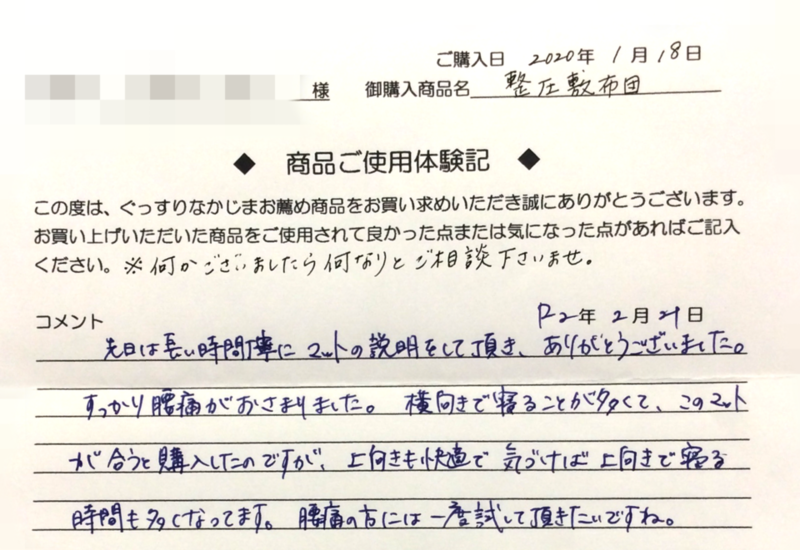 ご購入日 2020年 1月 18日
様 御購入商品名 整圧敷布団
◆ 商品ご使用体験記 ◆
この度は、ぐっすりなかじまお薦め商品をお買い求めいただき誠にありがとうございます。
お買い上げいただいた商品をご使用されて良かった点または気になった点があればご記入
ください。※何かございましたら何なりとご相談下さいませ。
コメント R2年 2月 21日
先日は長い時間丁寧にマットの説明をして頂き、ありがとうございました。
すっかり腰痛がおさまりました。横向きで寝ることが多くて、このマット
が合うと購入したのですが、上向きも快適で気づけば上向きで寝る
時間も多くなってます。腰痛の方には一度試して頂きたいですね。